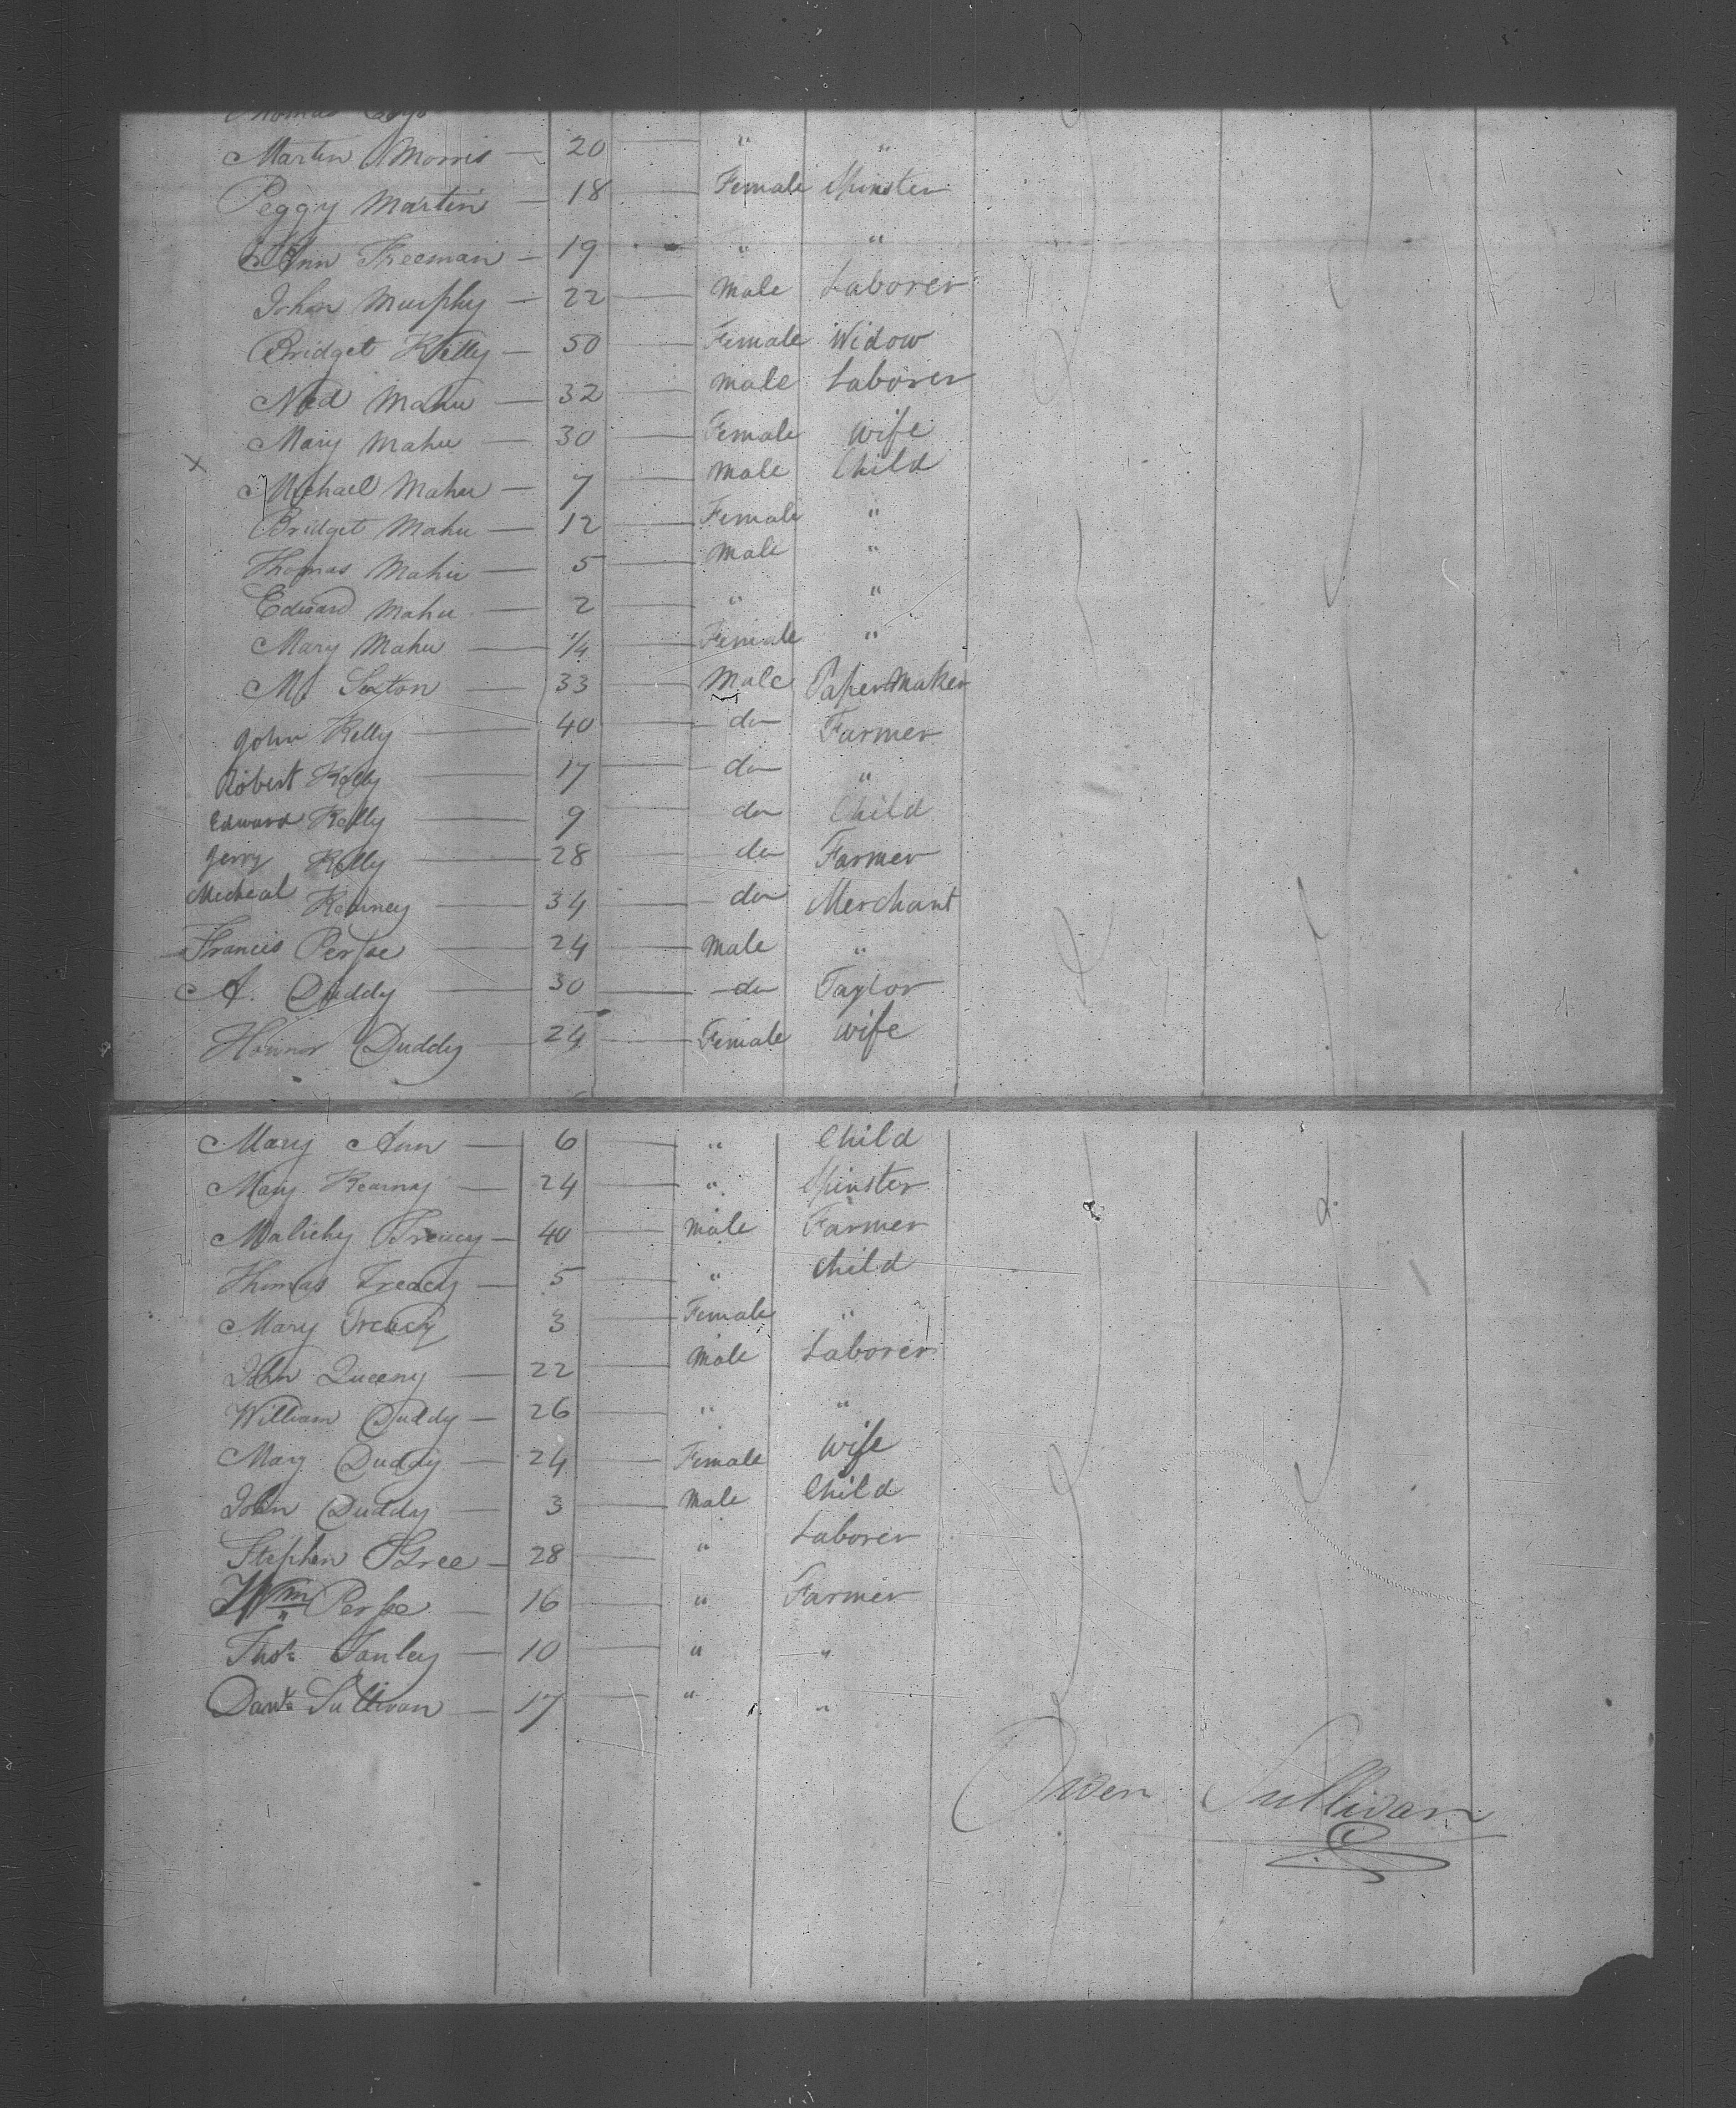 Thomas
Martin Morris — 20 — " "
Peggy Martin — 18 — Female Spinster
Ann Freeman — 19 " "
John Murphy — 22 — Male Laborer
Bridget Kelly — 50 — Female Widow
Ned Mahu — 32 — Male Laborer
Mary Mahu — 30 — Female Wife
Michael Mahu — 7 — Male Child
Bridget Mahu — 12 — Female "
Thomas Mahu — 5 — Male "
Edward Mahu — 2 — " "
Mary Mahu — 1/4 — Female "
M Sexton — 33 — Male Paper Maker
John Kelly — 40 — do Farmer
Robert Kelly — 17 — do "
Edward Kelly — 9 — do Child
Jerry Kelly — 28 — do Farmer
Micheal Kearney — 34 — do Merchant
Francis Perse — 24 — Male "
A. Duddy — 30 — do Taylor
Honner Duddy — 24 — Female Wife
Mary Ann — 6 — " Child
Mary Kearny — 24 — " Spinster
Malichy Treacy — 40 — Male Farmer
Thomas Treacy — 5 — " Child
Mary Treacy 3 — Female "
John Queeny — 22 — Male Laborer
William Duddy — 26 — " "
Mary Duddy — 24 — Female Wife
John Duddy — 3 — Male Child
Stephen — 28 — " Laborer
Wm Perse — 16 — " Farmer
Thos Fanley — 10 — " "
Danl Sullivan — 17 — " "
Owen Sullivan